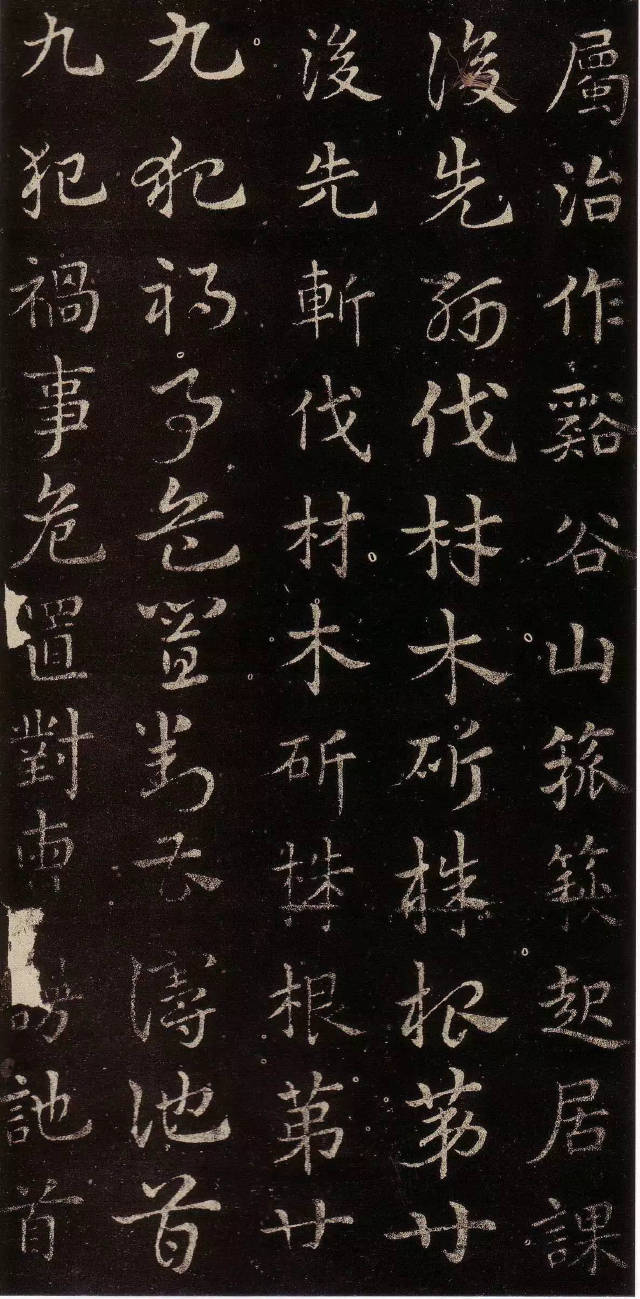 屬治作谿谷山箛篍起居課
後先斬伐材木斫株根第廿
後先斬伐材木斫株根第廿
九犯禍事危置對曹訑首
九犯禍事危置對訑首